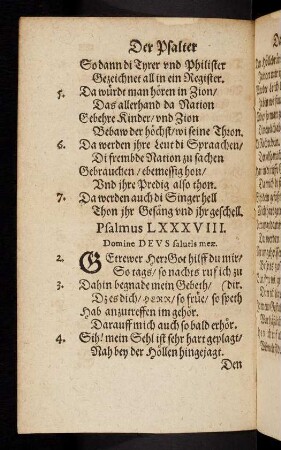 Der Psalter
So dann di Tyrer vnd Philister
Gezeichnet all in ein Register.
5. Da würdt man hören in Zion/
Das allerhand da Nation
Gebehre Kinder/ vnd Zion
Vebaw der höchst/ wi seine Thron.
6. Da werden jhre Leut di Spraachen/
Di frembde Nation zu sachen
Gebrauchen/ ebemessig hon/
Vnd jhre Predig also thon.
7. Da werden auch di Singer hell
Thon jhr Gesäng vnd jhr geschell.
Psalmus LXXXVIII.
Domine DEVS salutis meæ.
2. GEtrewer HerrGot hilff du mir/
So tags/ so nachts ruf ich zu
3. Dahin begnade mein Gebeth/ (dir.
Dz es dich/ HERR/ so früe/ so speth
Hab anzutreffen im gehör.
Darauff mich auch so bald erhör.
4. Sih! mein Sehl ist sehr hart geplagt/
Nah bey der Höllen hingejagt.
Den